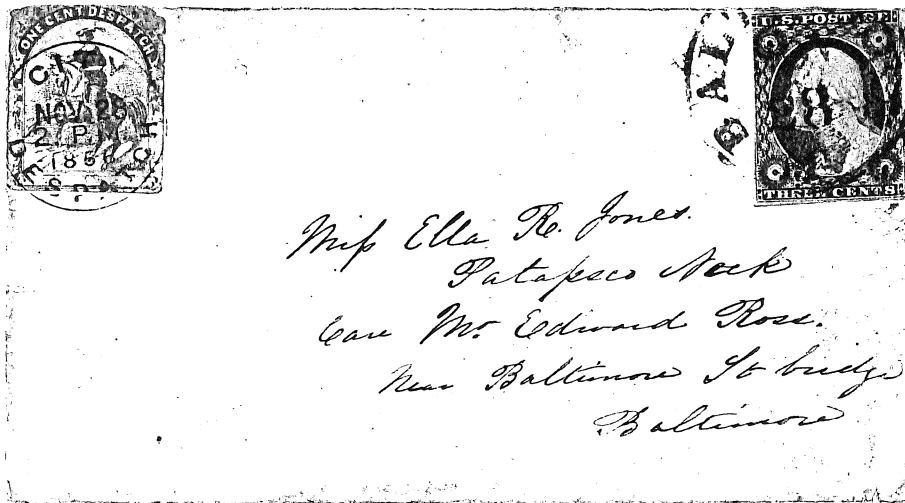 ONE CENT DESPATCH
CITY
NOV 28
2 P.
185
DESPATCH
BAL
U.S. POSTAGE
THREE CENTS
Miss Ella R. Jones.
Patapsco Neck
Care Mr. Edward Ross.
Near Baltimore St bridge
Baltimore